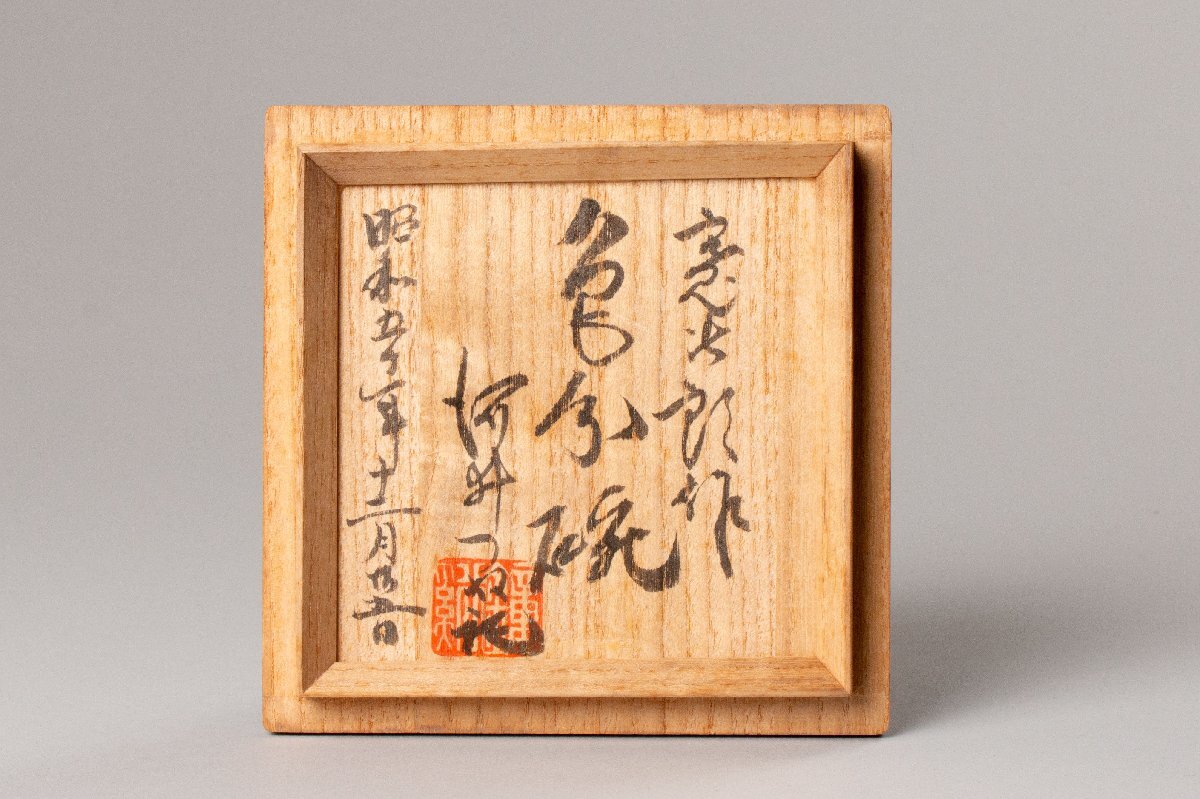 寛次郎作
色分碗
河井つね記
昭和五十年十二月廿五日